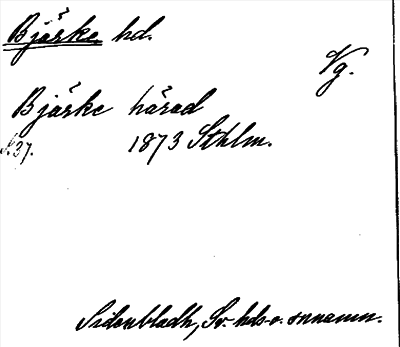 Bjärke hd.
Vg.
Bjärke härad
s.37. 1873 Sthlm.
Sidenbladh, Sv. hds-o. snnamn.